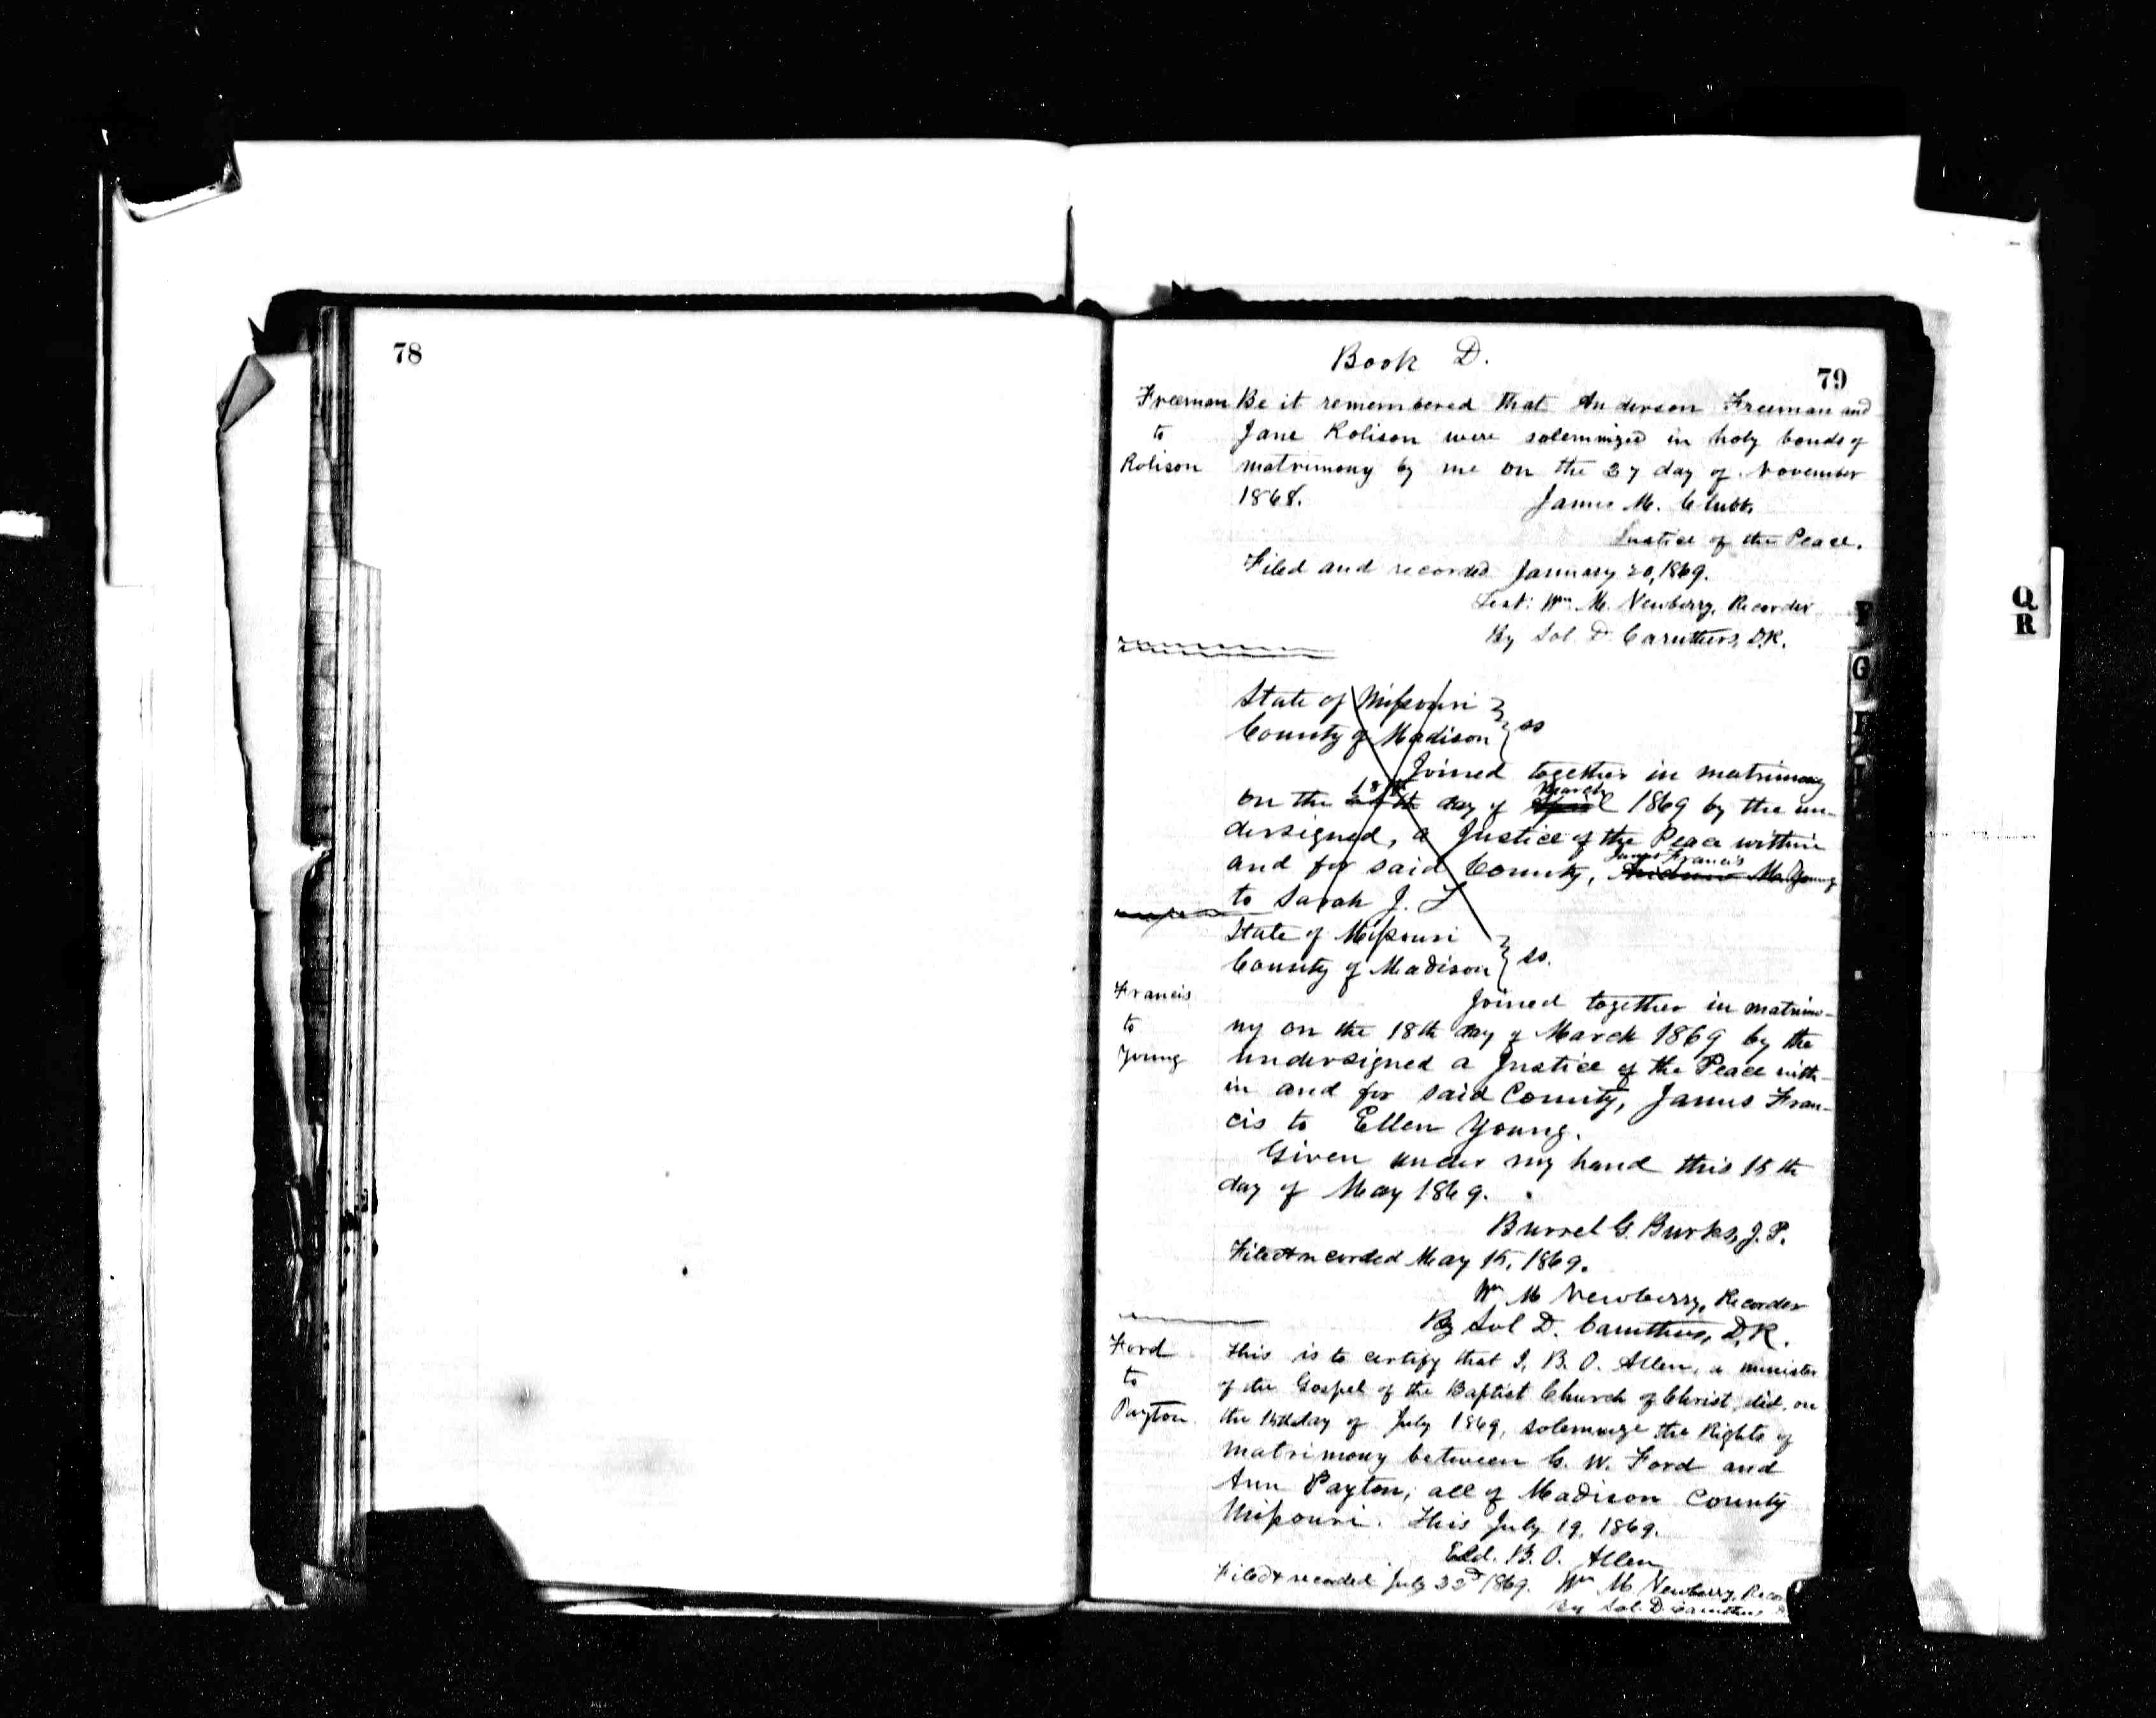 78
Book D.
79
Freeman
to
Rolison
Be it remembered that Anderson Freeman and
Jane Rolison were solemnized in holy bonds of
matrimony by me on the 27 day of November
1868.
James M. Clubb,
Justice of the Peace.
Filed and recorded January 20, 1869.
Test: Wm M. Newberry, Recorder
By Sol. D. Caruthers, D.R.
State of Missouri
County of Madison } ss
Joined together in matrimony
on the 18th day of March 1869 by the un-
dersigned, a Justice of the Peace within
and for said County, James Francis M. Young
to Sarah J. L
State of Missouri
County of Madison } ss.
Francis
to
Young
Joined together in matrimo-
ny on the 18th day of March 1869 by the
undersigned a Justice of the Peace with-
in and for said County, James Fran-
cis to Ellen Young.
Given under my hand this 15th
day of May 1869.
Burrel G. Burks, J. P.
Filed & recorded May 15, 1869.
Wm M Newberry, Recorder
By Sol D. Caruthers, D.R.
Ford
to
Payton
This is to certify that I, B. O. Allen, a minister
of the Gospel of the Baptist Church of Christ, did, on
the 15th day of July 1869, solemnize the Rights of
matrimony between G. W. Ford and
Ann Payton, all of Madison County
Missouri. This July 19, 1869.
Eld. B. O. Allen
Filed & recorded July 22d 1869. Wm M Newberry, Recor
By Sol. D. Caruthers
G
Q
R